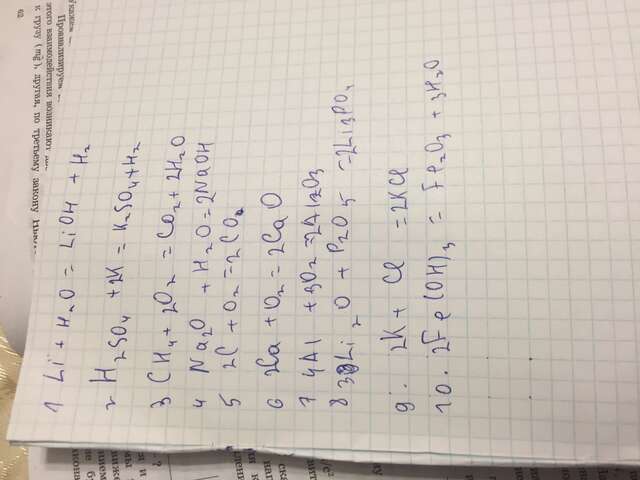 1 Li + H2O = LiOH + H2
2 H2SO4 + 2K = K2SO4 + H2
3 CH4 + 2O2 = CO2 + 2H2O
4 Na2O + H2O = 2NaOH
5 2C + O2 = 2CO
6 2Ca + O2 = 2CaO
7 4Al + 3O2 = 2Al2O3
8 3Li2O + P2O5 = 2Li3PO4
9. 2K + Cl = 2KCl
10. 2Fe(OH)3 = Fe2O3 + 3H2O
Проанализируем
этого взаимодействия возникают
к грузу (mg), другая, по третьему закону
62